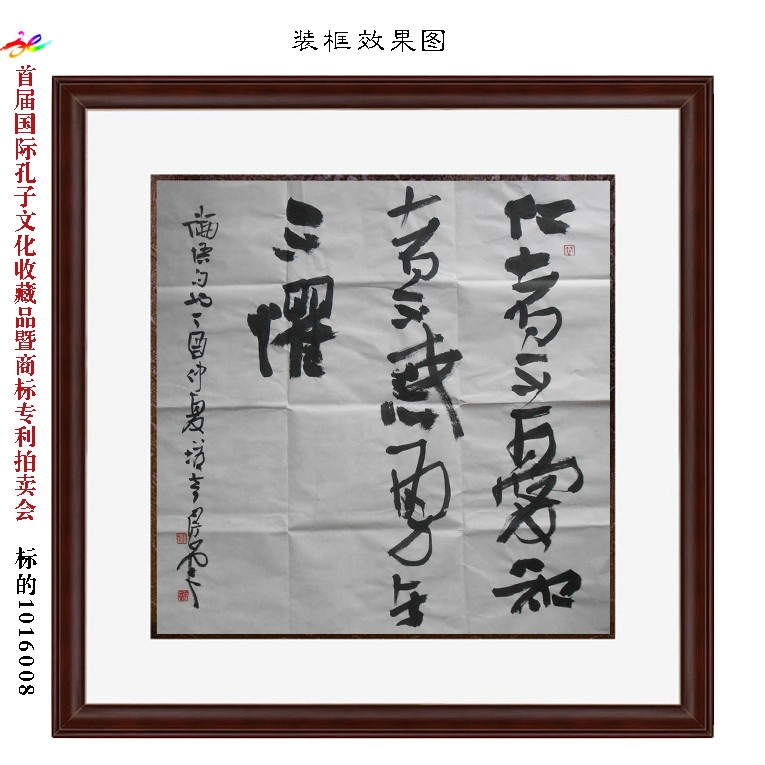 装框效果图
首届国际孔子文化收藏品暨商标专利拍卖会 标的1016008
仁者不憂知
者不惑勇者
不懼
論語句 丁酉仲夏